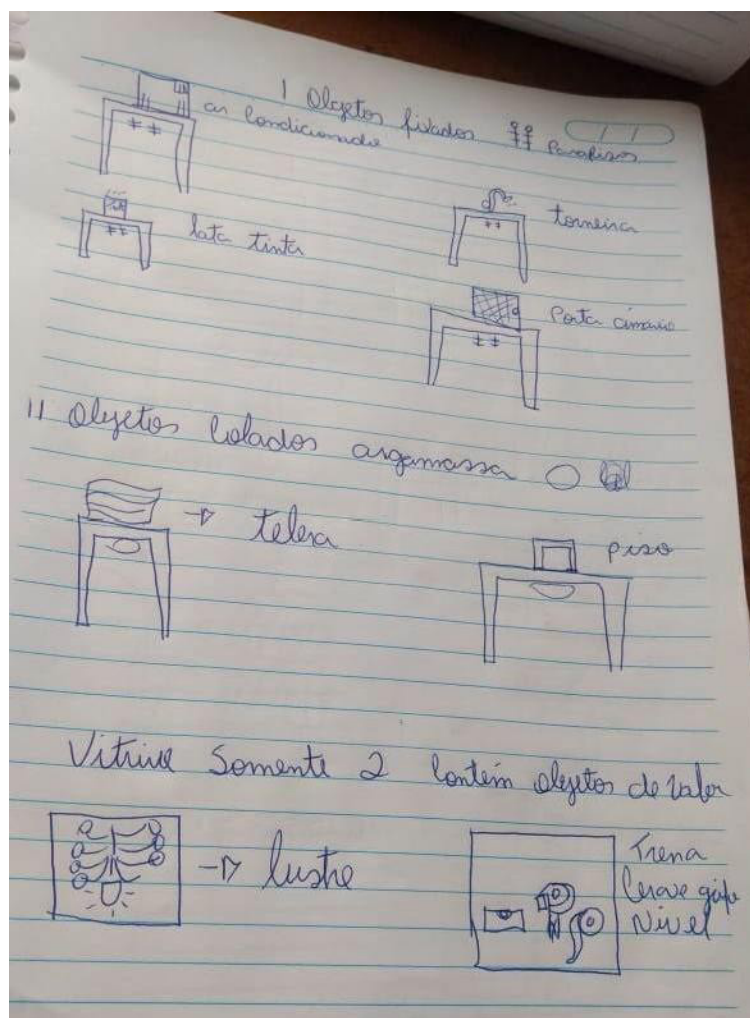 I Objetos fixados ‡‡ Parafusos
ar Condicionado
lata tinta
torneira
Porta armario
II Objetos Colados argamassa
→ telha
piso
Vitrine Somente 2 Contém objetos de valor
→ lustre
Trena
Nivel